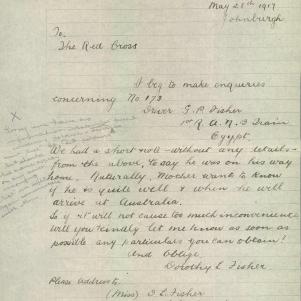 May 28th 1917
Edinburgh
To,
The Red Cross
I beg to make enquiries
concerning No. 173
Driver G. P. Fisher
1st R. A. N. B Train
Egypt.
We had a short note - without any details -
from the above, to say he was on his way
home. Naturally, Mother wants to know
if he is quite well & when he will
arrive at Australia.
So if it will not cause too much inconvenience
will you kindly let me know as soon as
possible any particulars you can obtain!
And Oblige
Dorothy L Fisher
Please Address to
(Miss) D. L. Fisher